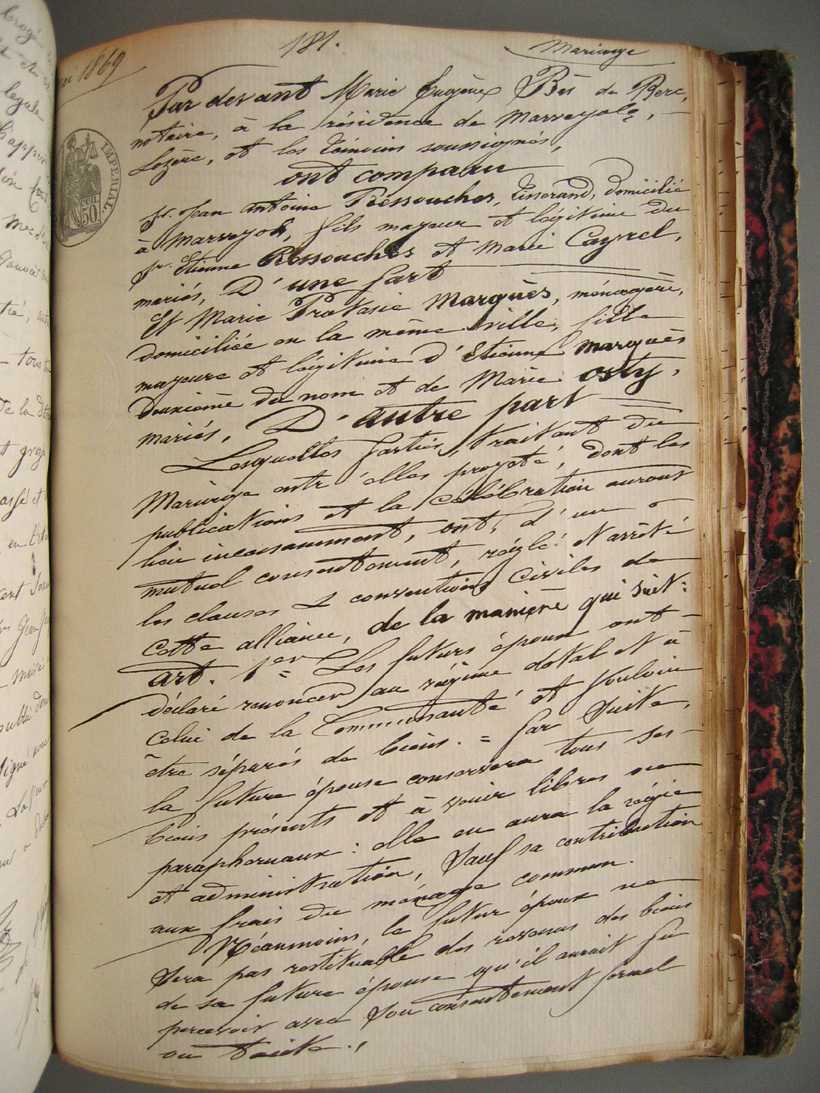 1869
181.
Mariage
Par devant Marie Eugène Bès de Berc,
notaire, à la résidence de Marvejols,
Lozère, et les témoins soussignés,
ont comparu
Sr. Jean Antoine Ressouches, tisserand, domicilié
à Marvejols, fils majeur et légitime du
Sr. Etienne Ressouches et Marie Cayrel,
mariés, D'une part
Et Marie Protasie Marquès, ménagère,
domiciliée en la même ville, fille
majeure et légitime d'Etienne Marquès
deuxième du nom et de Marie Osty,
mariés, D'autre part
Lesquelles parties, traitant du
Mariage entr'elles projeté, dont les
publications et la célébration auront
lieu incessamment, ont, d'un
mutuel consentement, réglé et arrêté
les clauses & conventions civiles de
cette alliance, de la manière qui suit:
art. 1er = Les futurs époux ont
déclaré renoncer au régime dotal et à
celui de la Communauté et vouloir
être séparés de biens. = Par suite,
la future épouse conservera tous ses
biens présents et à venir libres ou
paraphernaux: elle en aura la régie
et administration, sauf sa contribution
aux frais du ménage commun.
Néanmoins, le futur époux ne
sera pas restituable des revenus des biens
de sa future épouse qu'il aurait pu
percevoir avec son consentement formel
ou tacite.,
IMPERIAL.
50